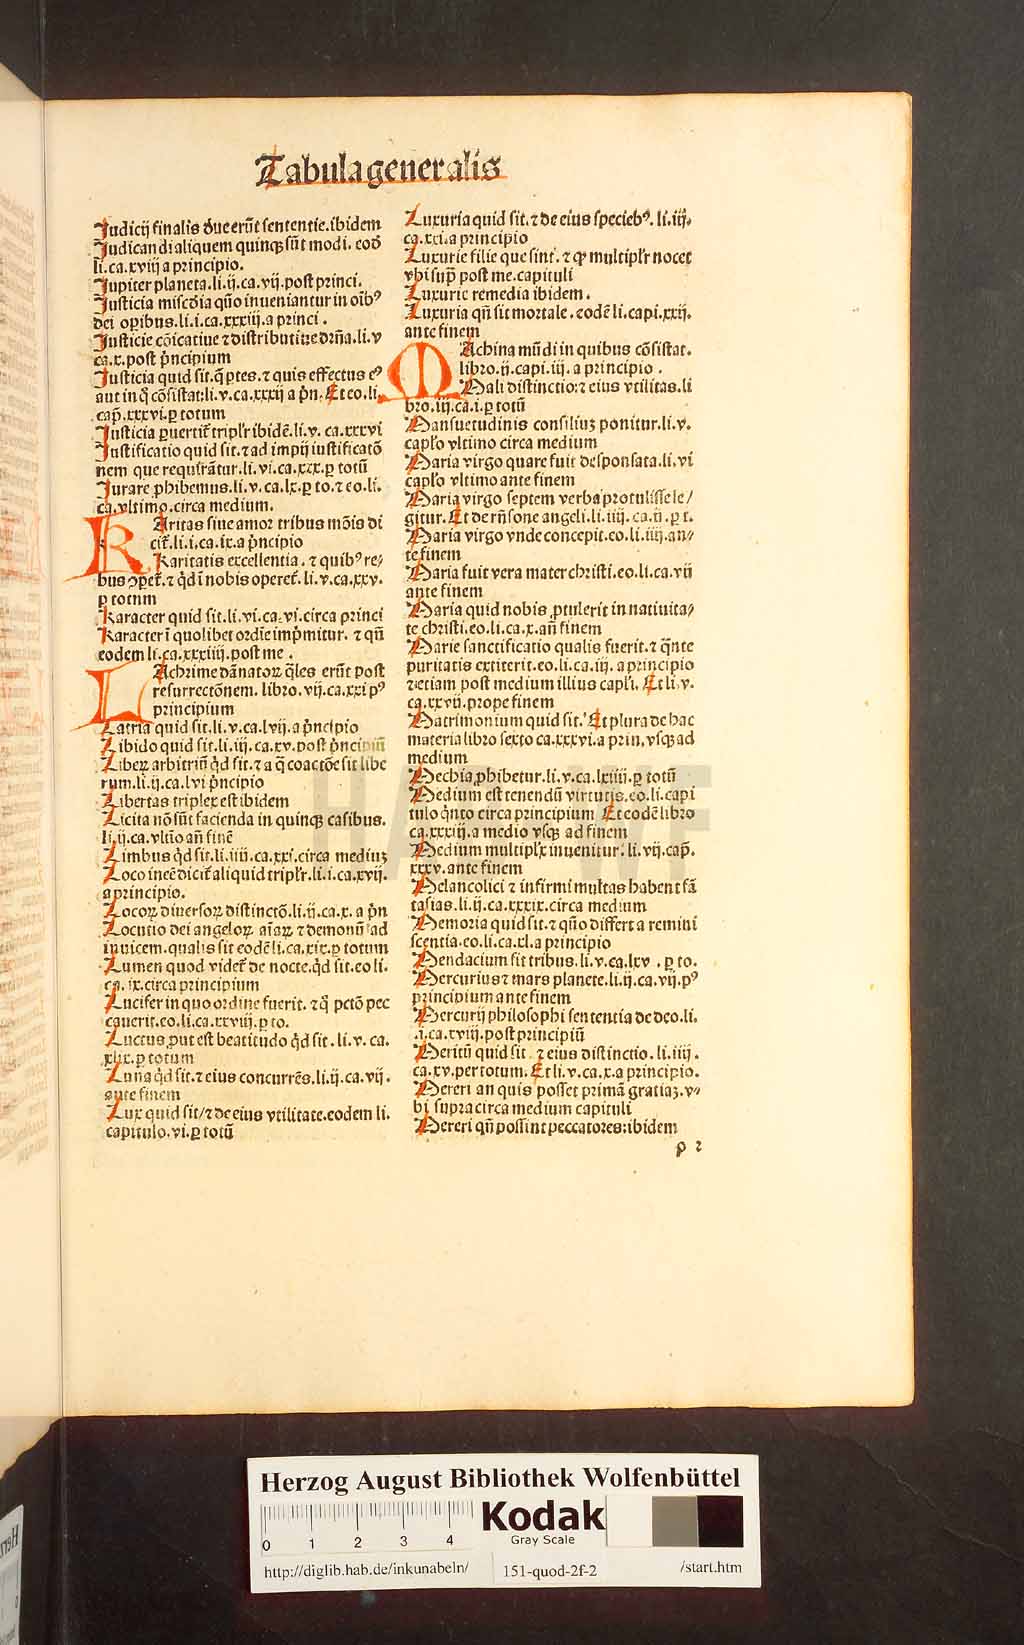 Tabula generalis
Judicij finalis due erūt sententie.ibidem
Judicandi aliquem quinqꝫ sūt modi. eoď
li.ca.xviij a principio.
Jupiter planeta.li.ij.ca.vij.post princi.
Justicia misc̄dia qūo inueniantur in oībꝰ
dei oꝑibus.li.i.ca.xxxiij.a princi.
Justicie cōicatiue ⁊ distributiue dr̄ña.li.v
ca.x.post pⁱncipium
Justicia quid sit.q̄ ptes.⁊ quis effectus eꝰ
aut in q̄ cōsistat:li.v.ca.xxxij a pⁱn. Et eo.li
cap̄.xxxvi.ꝑ totum
Justicia ꝑuertit᷑ triplr̄ ibidē.li.v. ca.xxxvi
Justificatio quid sit.⁊ ad impij iustificatō
nem que requirātur.li.vi.ca.xix.ꝑ totū
Jurare ꝓhibemus.li.v.ca.lx.ꝑ to.⁊ eo.li.
ca.vltimo.circa medium.
KAritas siue amor tribus mōis di
cit᷑.li.i.ca.ix.a pⁱncipio
Karitatis excellentia. ⁊ quibꝰ re⸗
bus oꝑet᷑. ⁊ qͥd ī nobis operet᷑. li.v.ca.xxv.
ꝑ totum
Karacter quid sit.li.vi.ca.vi.circa princi
Karacter ī quolibet ordīe impⁱmitur. ⁊ qn̄
eodem li.ca.xxxiiij.post me.
LAchrime dānatoꝝ q̄les erūt post
resurrectōnem. libro.vij.ca.xxi pꝰ
principium
Latria quid sit.li.v.ca.lvij.a pⁱncipio
Libido quid sit.li.iij.ca.xv.post pⁱncipiū
Libeꝝ arbitriū qͥd sit.⁊ a q̄ coactōe sit libe
rum.li.ij.ca.lvi pⁱncipio
Libertas triplex est ibidem
Licita nō sūt facienda in quinqꝫ casibus.
li.ij.ca.vltīo añ finē
Limbus qͥd sit.li.iiij.ca.xxi.circa mediuꝫ
Loco incē dicit᷑ aliquid triplr̄.li.i.ca.xvij.
a principio.
Locoꝝ diuersoꝝ distinctō.li.ij.ca.x.a pⁱn
Locutio dei angeloꝝ aīaꝝ ⁊ demonū ad
inuicem.qualis sit eodē li.ca.xix.ꝑ totum
Lumen quod videt᷑ de nocte.qͥd sit.eo li.
ca.ix.circa principium
Lucifer in quo ordine fuerit. ⁊ qͥ pctō pec
cauerit.eo.li.ca.xxviij.ꝑ to.
Luctus put est beatitudo qͥd sit.li.v.ca.
xlix.ꝑ totum
Luna qͥd sit.⁊ eius concurrēs.li.ij.ca.vij.
ante finem
Lux quid sit/⁊ de eius vtilitate.eodem li.
capitulo.vi.ꝑ totū
Luxuria quid sit.⁊ de eius specieb⁹. li.iij.
ca.xxi.a principio
Luxurie filie que sint. ⁊ ꝙ multiplr̄ nocet
vbi sup̄ post me.capituli
Luxurie remedia ibidem.
Luxuria qn̄ sit mortale.eodē li.capi.xxij.
ante finem
MAchina mūdi in quibus cōsistat.
libro.ij.capi.iij.a principio.
Mali distinctio:⁊ eius vtilitas.li
bro.iij.ca.i.ꝑ totū
Mansuetudinis consiliuꝫ ponitur.li.v.
capl̓o vltimo circa medium
Maria virgo quare fuit desponsata.li.vi
capl̓o vltimo ante finem
Maria virgo septem verba protulisse le/
gitur. Et de rn̄sone angeli.li.iiij.ca.ii.ꝑ t.
Maria virgo vnde concepit.eo.li.iiij.an⸗
te finem
Maria fuit vera mater christi.eo.li.ca.vij
ante finem
Maria quid nobis ꝓtulerit in natiuita⸗
te christi.eo.li.ca.x.añ finem
Marie sanctificatio qualis fuerit.⁊ q̄nte
puritatis extiterit.eo.li.ca.iij. a principio
⁊ etiam post medium illius capl̓i. Et li.v.
ca.xxvij.prope finem
Matrimonium quid sit. Et plura de hac
materia libro sexto ca.xxxvi.a prin.vsqꝫ ad
medium
Mechia ꝓhibetur.li.v.ca.lxiiij.ꝑ totū
Medium est tenendū virtutis.eo.li.capi
tulo qͥnto circa principium Et eodē libro
ca.xxxiij.a medio vsqꝫ ad finem
Medium multipl̓x inuenitur. li.vij.cap̄.
xxxv.ante finem
Melancolici ⁊ infirmi multas habent fā
tasias.li.ij.ca.xxxix.circa medium
Memoria quid sit.⁊ qūo differt a remini
scentia.eo.li.ca.xl.a principio
Mendacium fit tribus.li.v.ca.lxv.ꝑ to.
Mercurius ⁊ mars planete.li.ij.ca.vij.pꝰ
principium ante finem
Mercurij philosophi sententia de deo.li.
.i.ca.xviij.post principiū
Meritū quid sit. ⁊ eius distinctio.li.iiij.
ca.xv.per totum. Et li.v.ca.x.a principio.
Mereri an quis posset primā gratiaꝫ.v⸗
bi supra circa medium capituli
Mereri qn̄ possint peccatores:ibidem
p 2
HAB WF
Herzog August Bibliothek Wolfenbüttel
0 1 2 3 4
Kodak
Gray Scale
http://diglib.hab.de/inkunabeln/
151-quod-2f-2
/start.htm